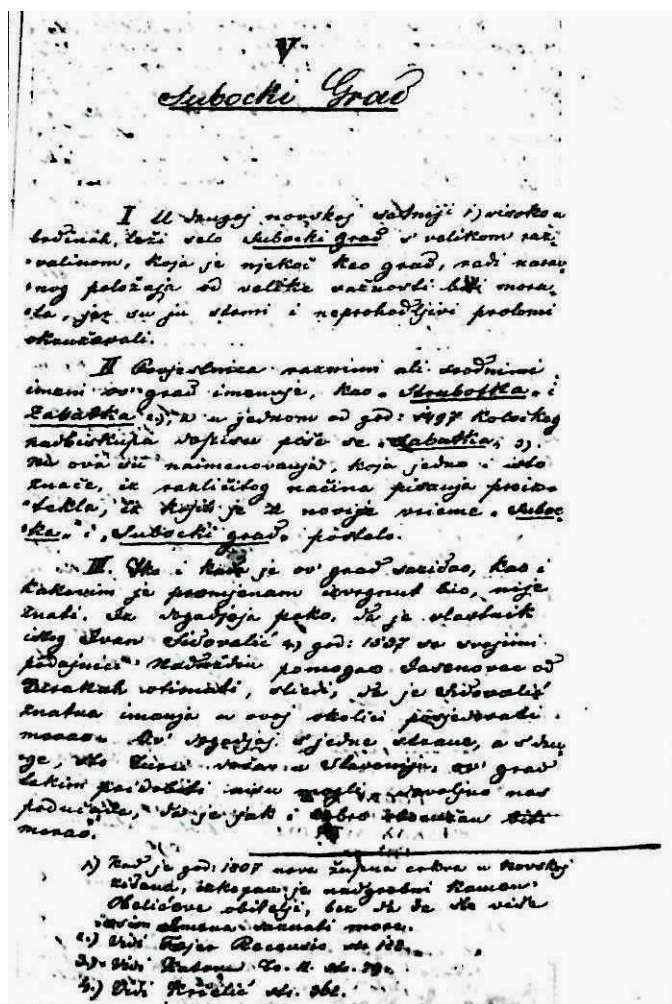 V
Subocki Grad
I U drugoj novskoj satniji 1) visoko u
brdinah, leži selo Subocki grad s velikom raz-
valinom, koja je njekoč kao grad, radi narav-
nog položaja od velike važnosti biti mora-
la, jer su ju stermi i neprohodljivi prolomi
okružavali.
II Povjestnica raznimi ali srodnimi
imeni ov grad imenuje, kao „Strubotka„ i
Zabatka 2), a u jednom od god: 1497 koločkog
nadbiskupa popisu piše se „Sabatka„ 3).
Na ova sva naimenovanja, koja jedno i isto
znače, iz različitog načina pisanja proiz-
tekla, iz kojih je za novije vrieme „Suboc-
ka„ i „Subocki grad„ postalo.
III. Tko i kada je ov grad sazidao, kao i
kakovim je promjenam izvrgnut bio, nije
znati. Iz dogadjaja pako, da je vlastnik
istog Ivan Sidovalić 4) god: 1537 sa svojimi
podajnici pomogao Jasenovac od
Turakah otimati, sliedi, da je Sidovalić
znatna imanja u ovoj okolici posjedovati
morao. Ov dogadjaj s jedne strane, a s dru-
ge, što Turci u Slavoniji ov grad
pridobiti nisu mogli, dovoljno nas
podučava, da je jak i dobro obzidan biti
morao.
1) Kad je god: 1807 nova župna crkva u Novskoj
zidana, izkopan je nadgrobni kamen
obitelji, bez da da se više
osim imena saznati more.
2.) Vidi Recensio. str. 188.
3.) Vidi Katona To. II. str. 79.
4.) Vidi Krčelić str. 361.